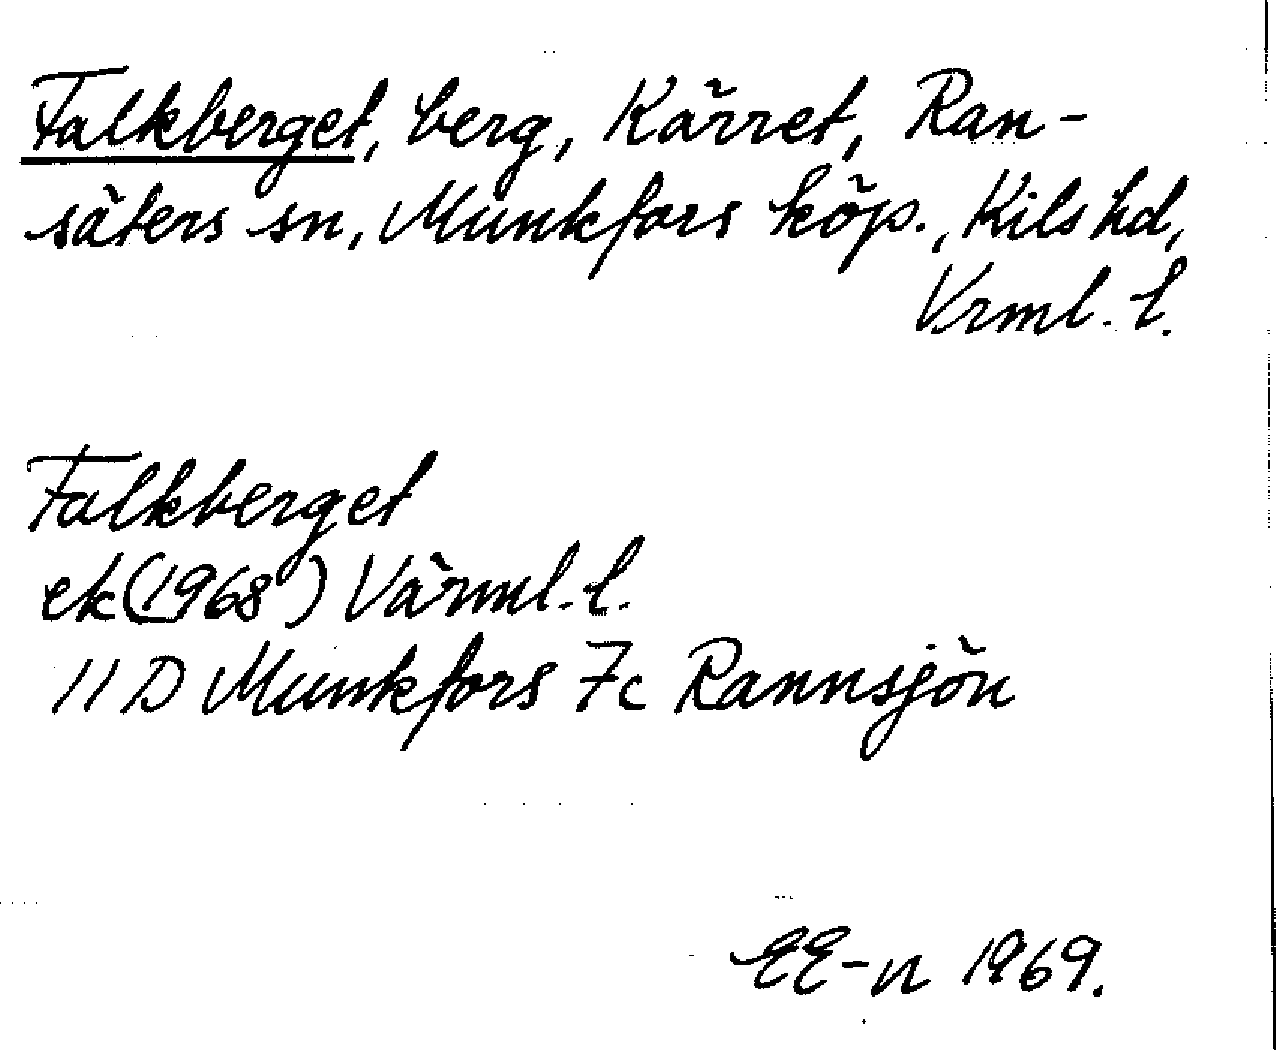 Falkberget, berg, Kärret, Ran-
säters sn, Munkfors köp., Kils hd,
Vrml. l.
Falkberget
ek (1968) Värml. l.
11 D Munkfors 7c Rannsjön
EE-n 1969.